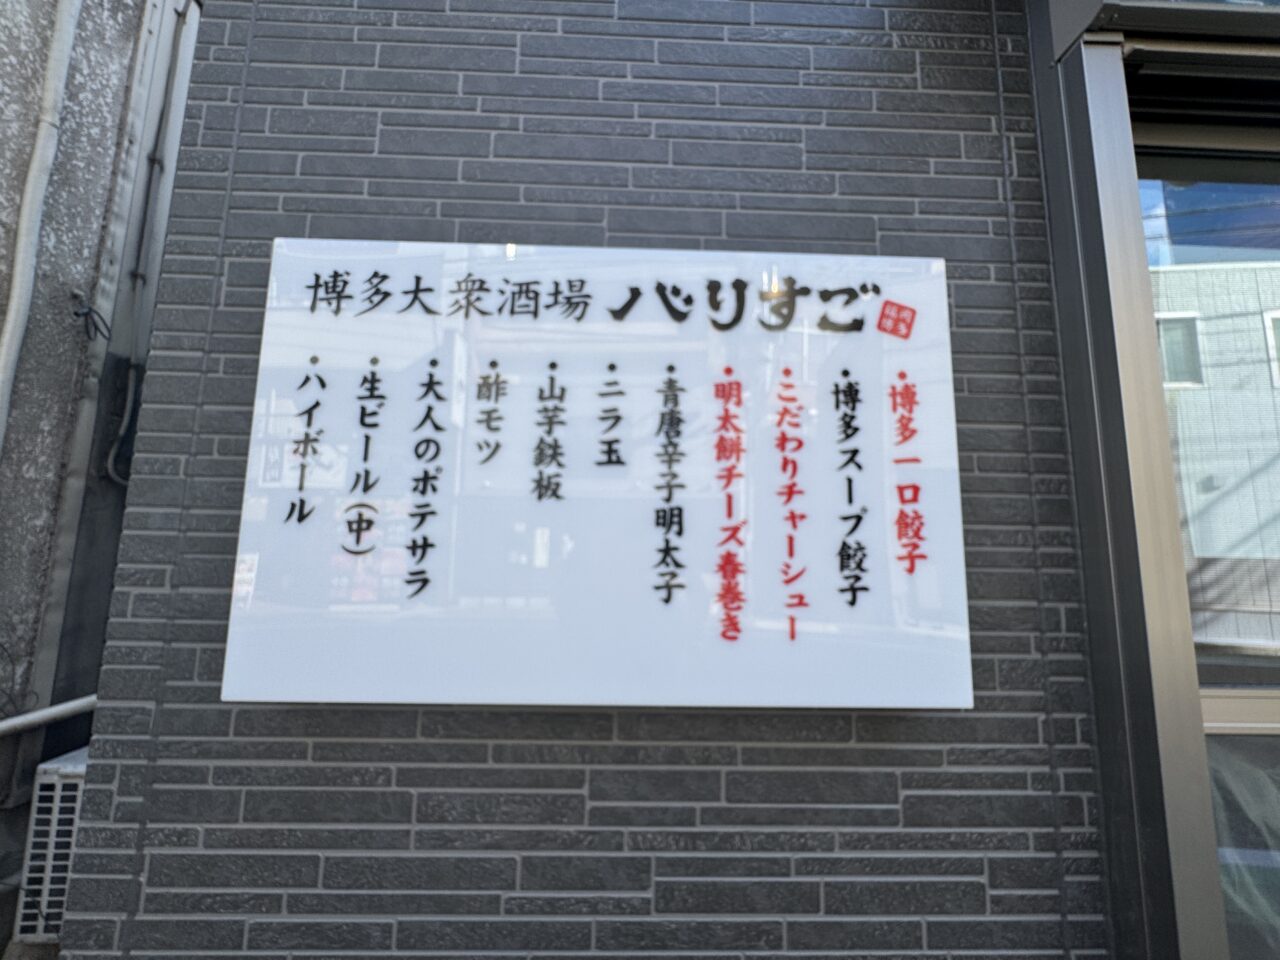 博多大衆酒場 バリすご
福岡
博多
・博多一口餃子
・博多スープ餃子
・こだわりチャーシュー
・明太餅チーズ春巻き
・青唐辛子明太子
・ニラ玉
・山芋鉄板
・酢モツ
・大人のポテサラ
・生ビール(中)
・ハイボール